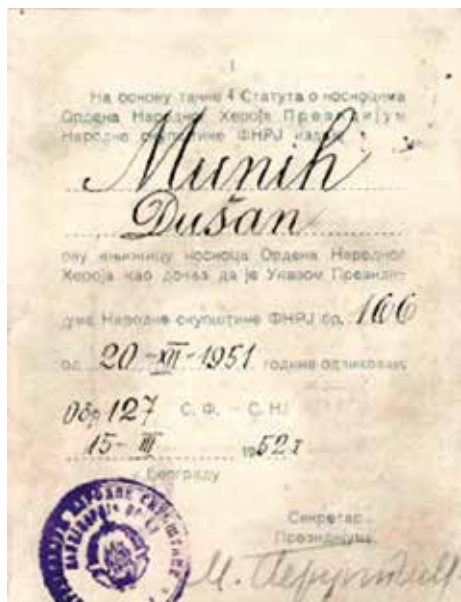 1
На основу тачке 4 Статута о носиоцима
Ордена Народног Хероја Президијум
Народне скупштине ФНРЈ издаје
Munih
Dušan
ову књижицу носиоца Ордена Народног
Хероја као доказ да је Указом Президи-
јума Народне скупштине ФНРЈ бр. 166
од 20-XII-1951 године одликован
Обр 127 С. Ф. – С. Н.
15-III 1952 г
у Београду
Секретар
Президијума,